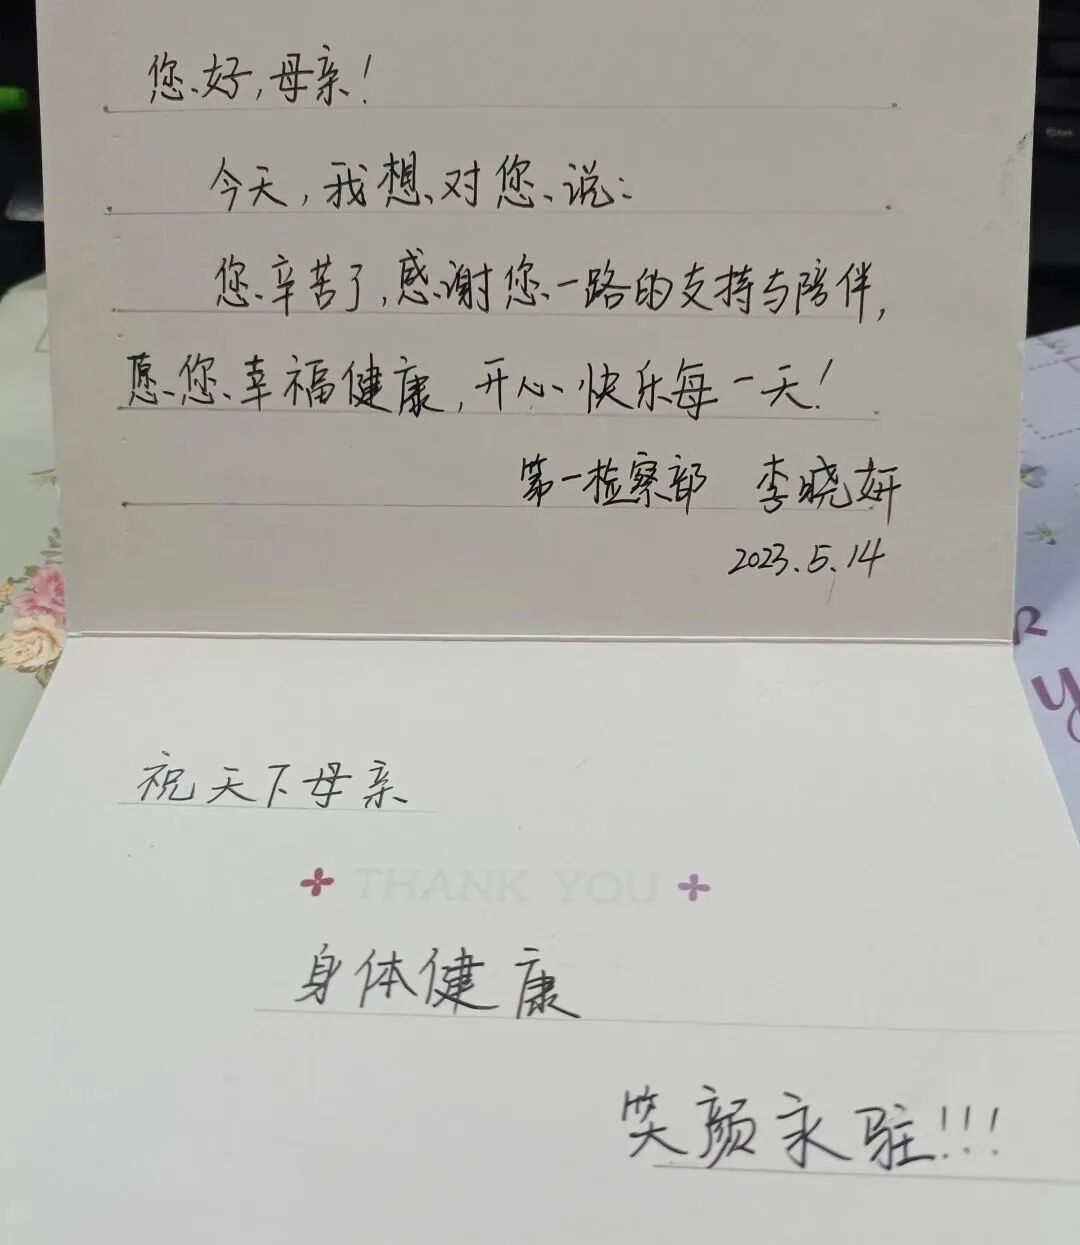 您好,母亲!
今天,我想对您说:
您辛苦了,感谢您一路的支持与陪伴,
愿您幸福健康,开心快乐每一天!
第一检察部 李晓妍
2023.5.14
祝天下母亲
THANK YOU
身体健康
笑颜永驻!!!